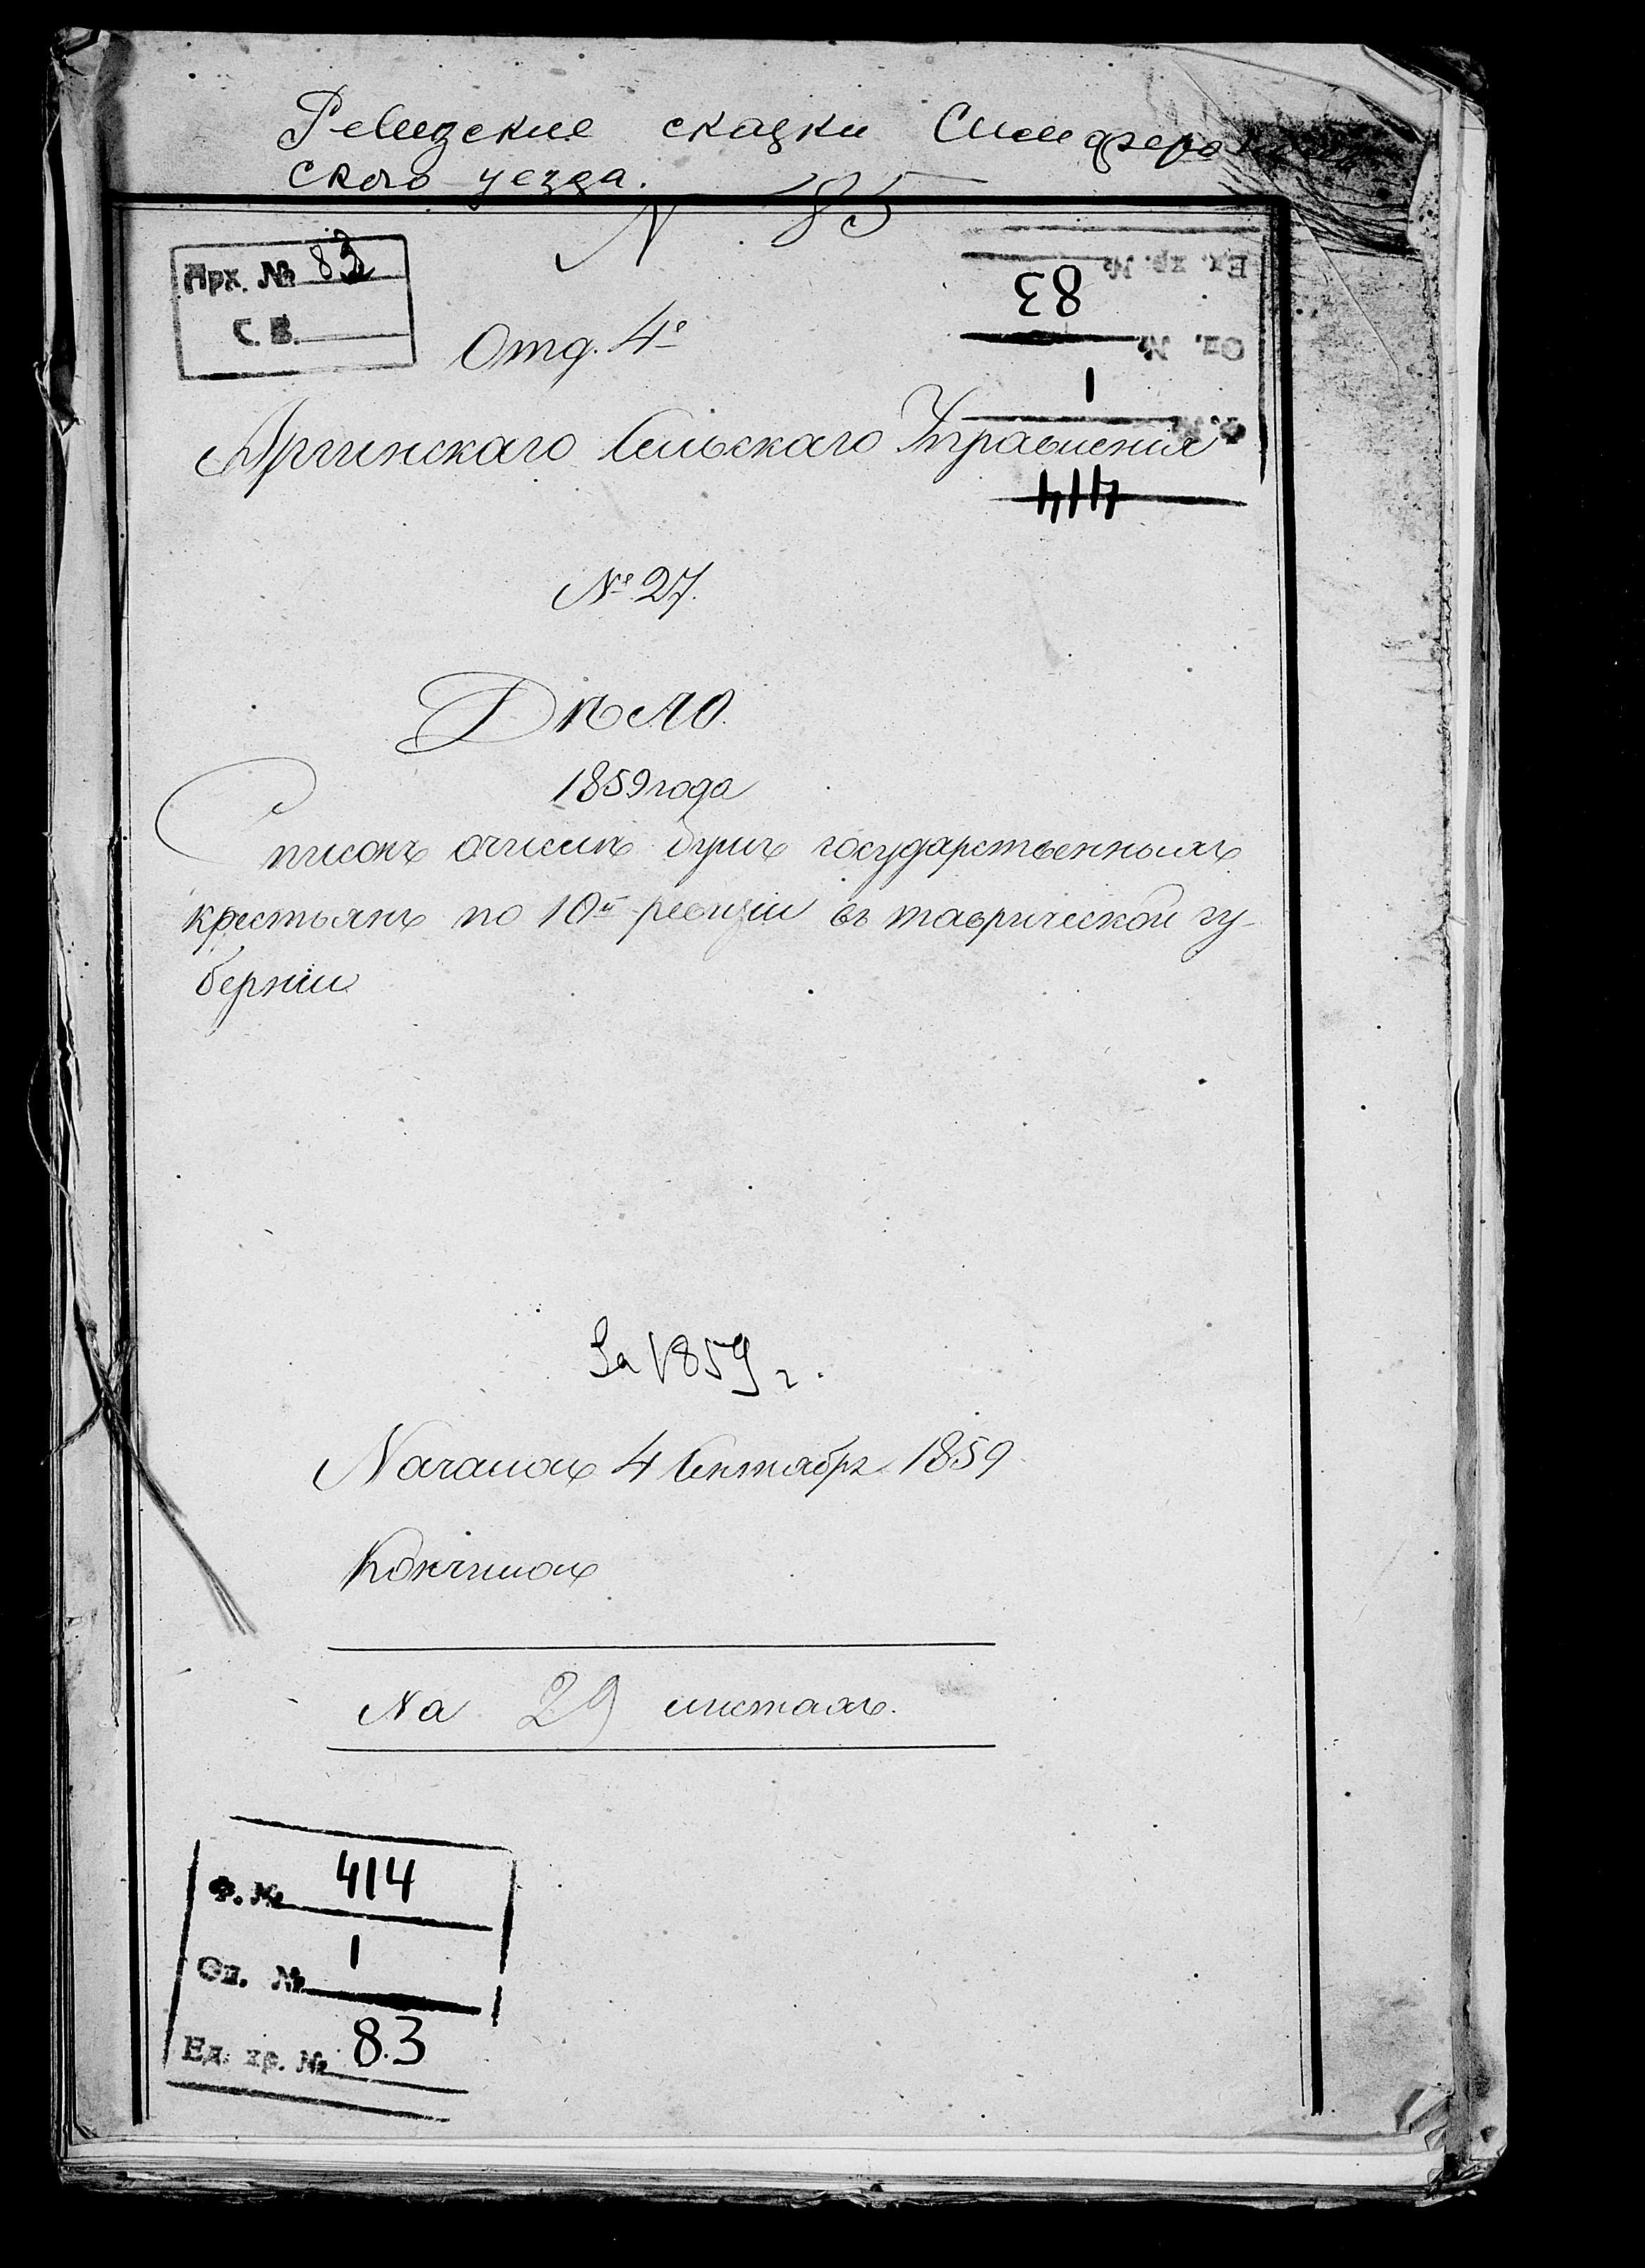 Ревизские сказки Симферо
ского уезда.
N 85
Арх. № 83
С. В.
Ед. хр. №
83
Оп. №
1
Ф. №
414
Отд. 4е
Аргинскаго Сельскаго Управления
№ 27.
Дѣло.
1859 года
Списокъ очислѣ душъ государственныхъ
крестьянъ по 10й ревизіи въ таврической гу-
берніи
За 1859 г.
Началось 4 Сентябрѧ 1859
Кончилось
На 29 листахъ.
Ф. № 414
Оп. № 1
Ед. хр. № 83